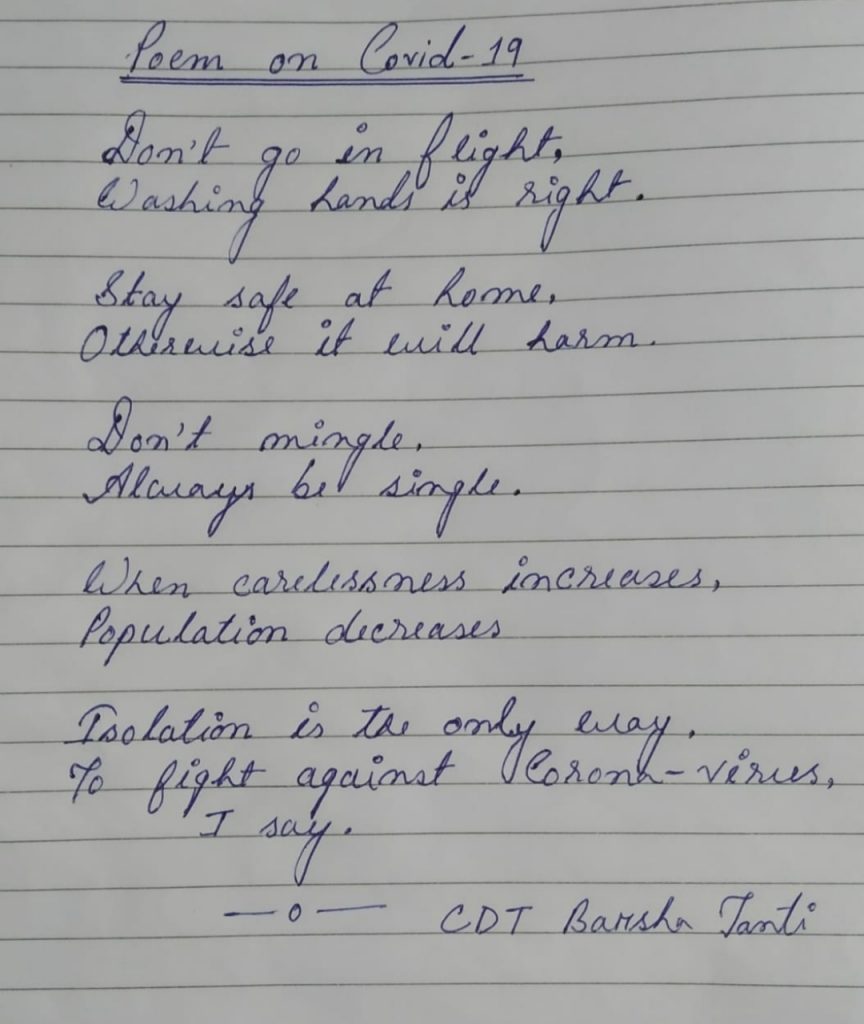 Poem on Covid-19
Don't go in flight,
Washing hands is right.
Stay safe at home,
Otherwise it will harm.
Don't mingle,
Always be single.
When carelessness increases,
Population decreases
Isolation is the only way,
To fight against Corona-virus,
I say.
—o— CDT Barsha Tanti